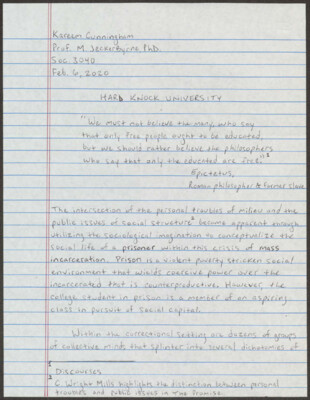 Kareem Cunningham
Prof. M. Jeckerbyrne, PhD.
Soc 3040
Feb. 6, 2020
HARD KNOCK UNIVERSITY
"We must not believe the many, who say
that only free people ought to be educated,
but we should rather believe the philosophers
who say that only the educated are free."1
Epictetus,
Roman philosopher & former slave
The intersection of the personal troubles of milieu and the
public issues of social structure2 become apparent enough
utilizing the sociological imagination to conceptualize the
social life of a prisoner within this crisis of mass
incarceration. Prison is a violent poverty stricken social
environment that wields coercive power over the
incarcerated that is counterproductive. However, the
college student in prison is a member of an aspiring
class in pursuit of social capital.
Within the correctional setting are dozens of groups
of collective minds that splinter into several dichotomies of
1 Discourses
2 C Wright Mills highlights the distinction between personal
troubles and public issues in The Promise.